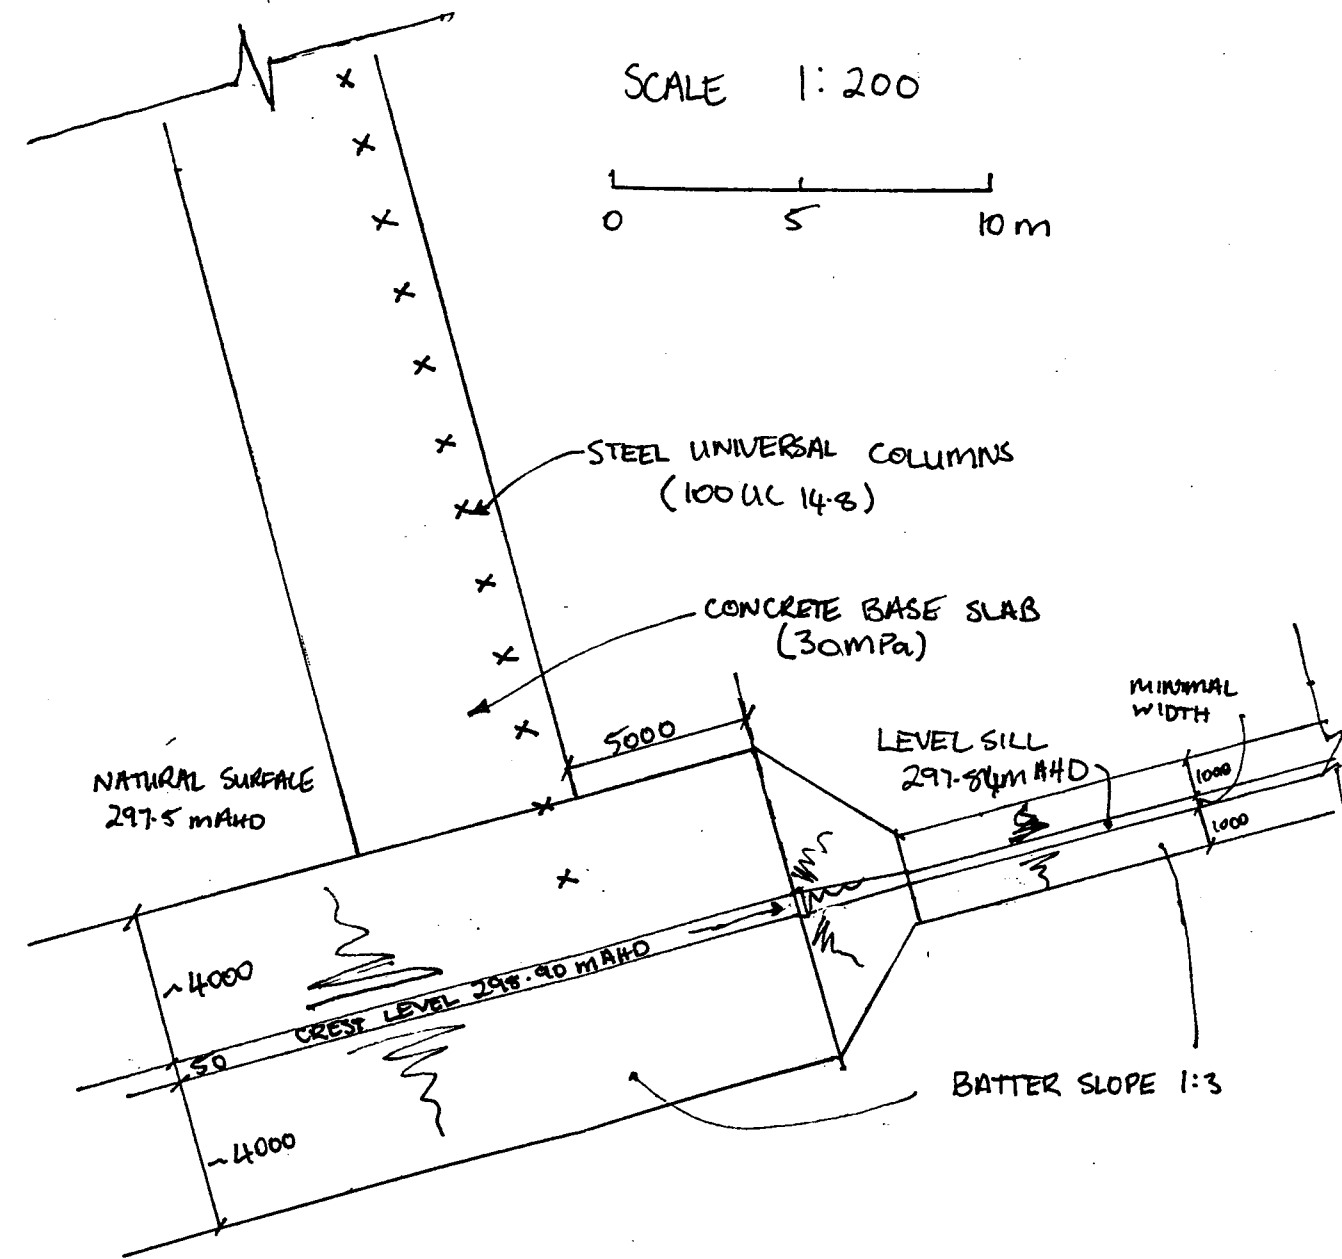 SCALE 1:200
0 5 10m
STEEL UNIVERSAL COLUMNS
(100 UC 14.8)
CONCRETE BASE SLAB
(30mPa)
MINIMAL
WIDTH
5000
LEVEL SILL
297.84m AHD
1000
1000
NATURAL SURFACE
297.5 mAHD
~4000
CREST LEVEL 298.90 mAHD
50
BATTER SLOPE 1:3
~4000